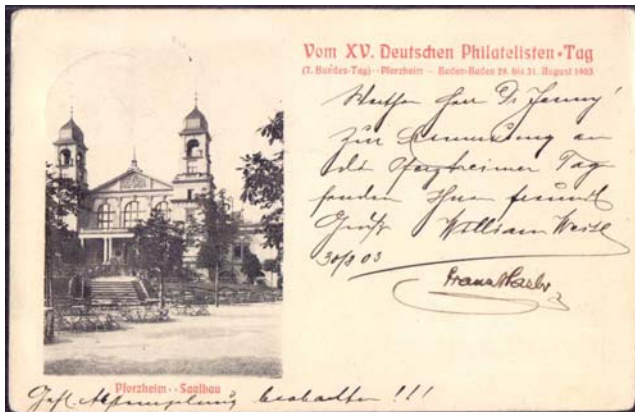 Vom XV. Deutschen Philatelisten-Tag
(7. Bundes-Tag) -- Pforzheim – Baden-Baden 28. bis 31. August 1903
Werther Herr Dr Jenny!
Zur Erinnerung an
die Pforzheimer Tage
senden Ihnen freundl
Gruß William Weise
30/8 03
Pforzheim -- Saalbau
Gefl. Abstempelung beobachten !!!